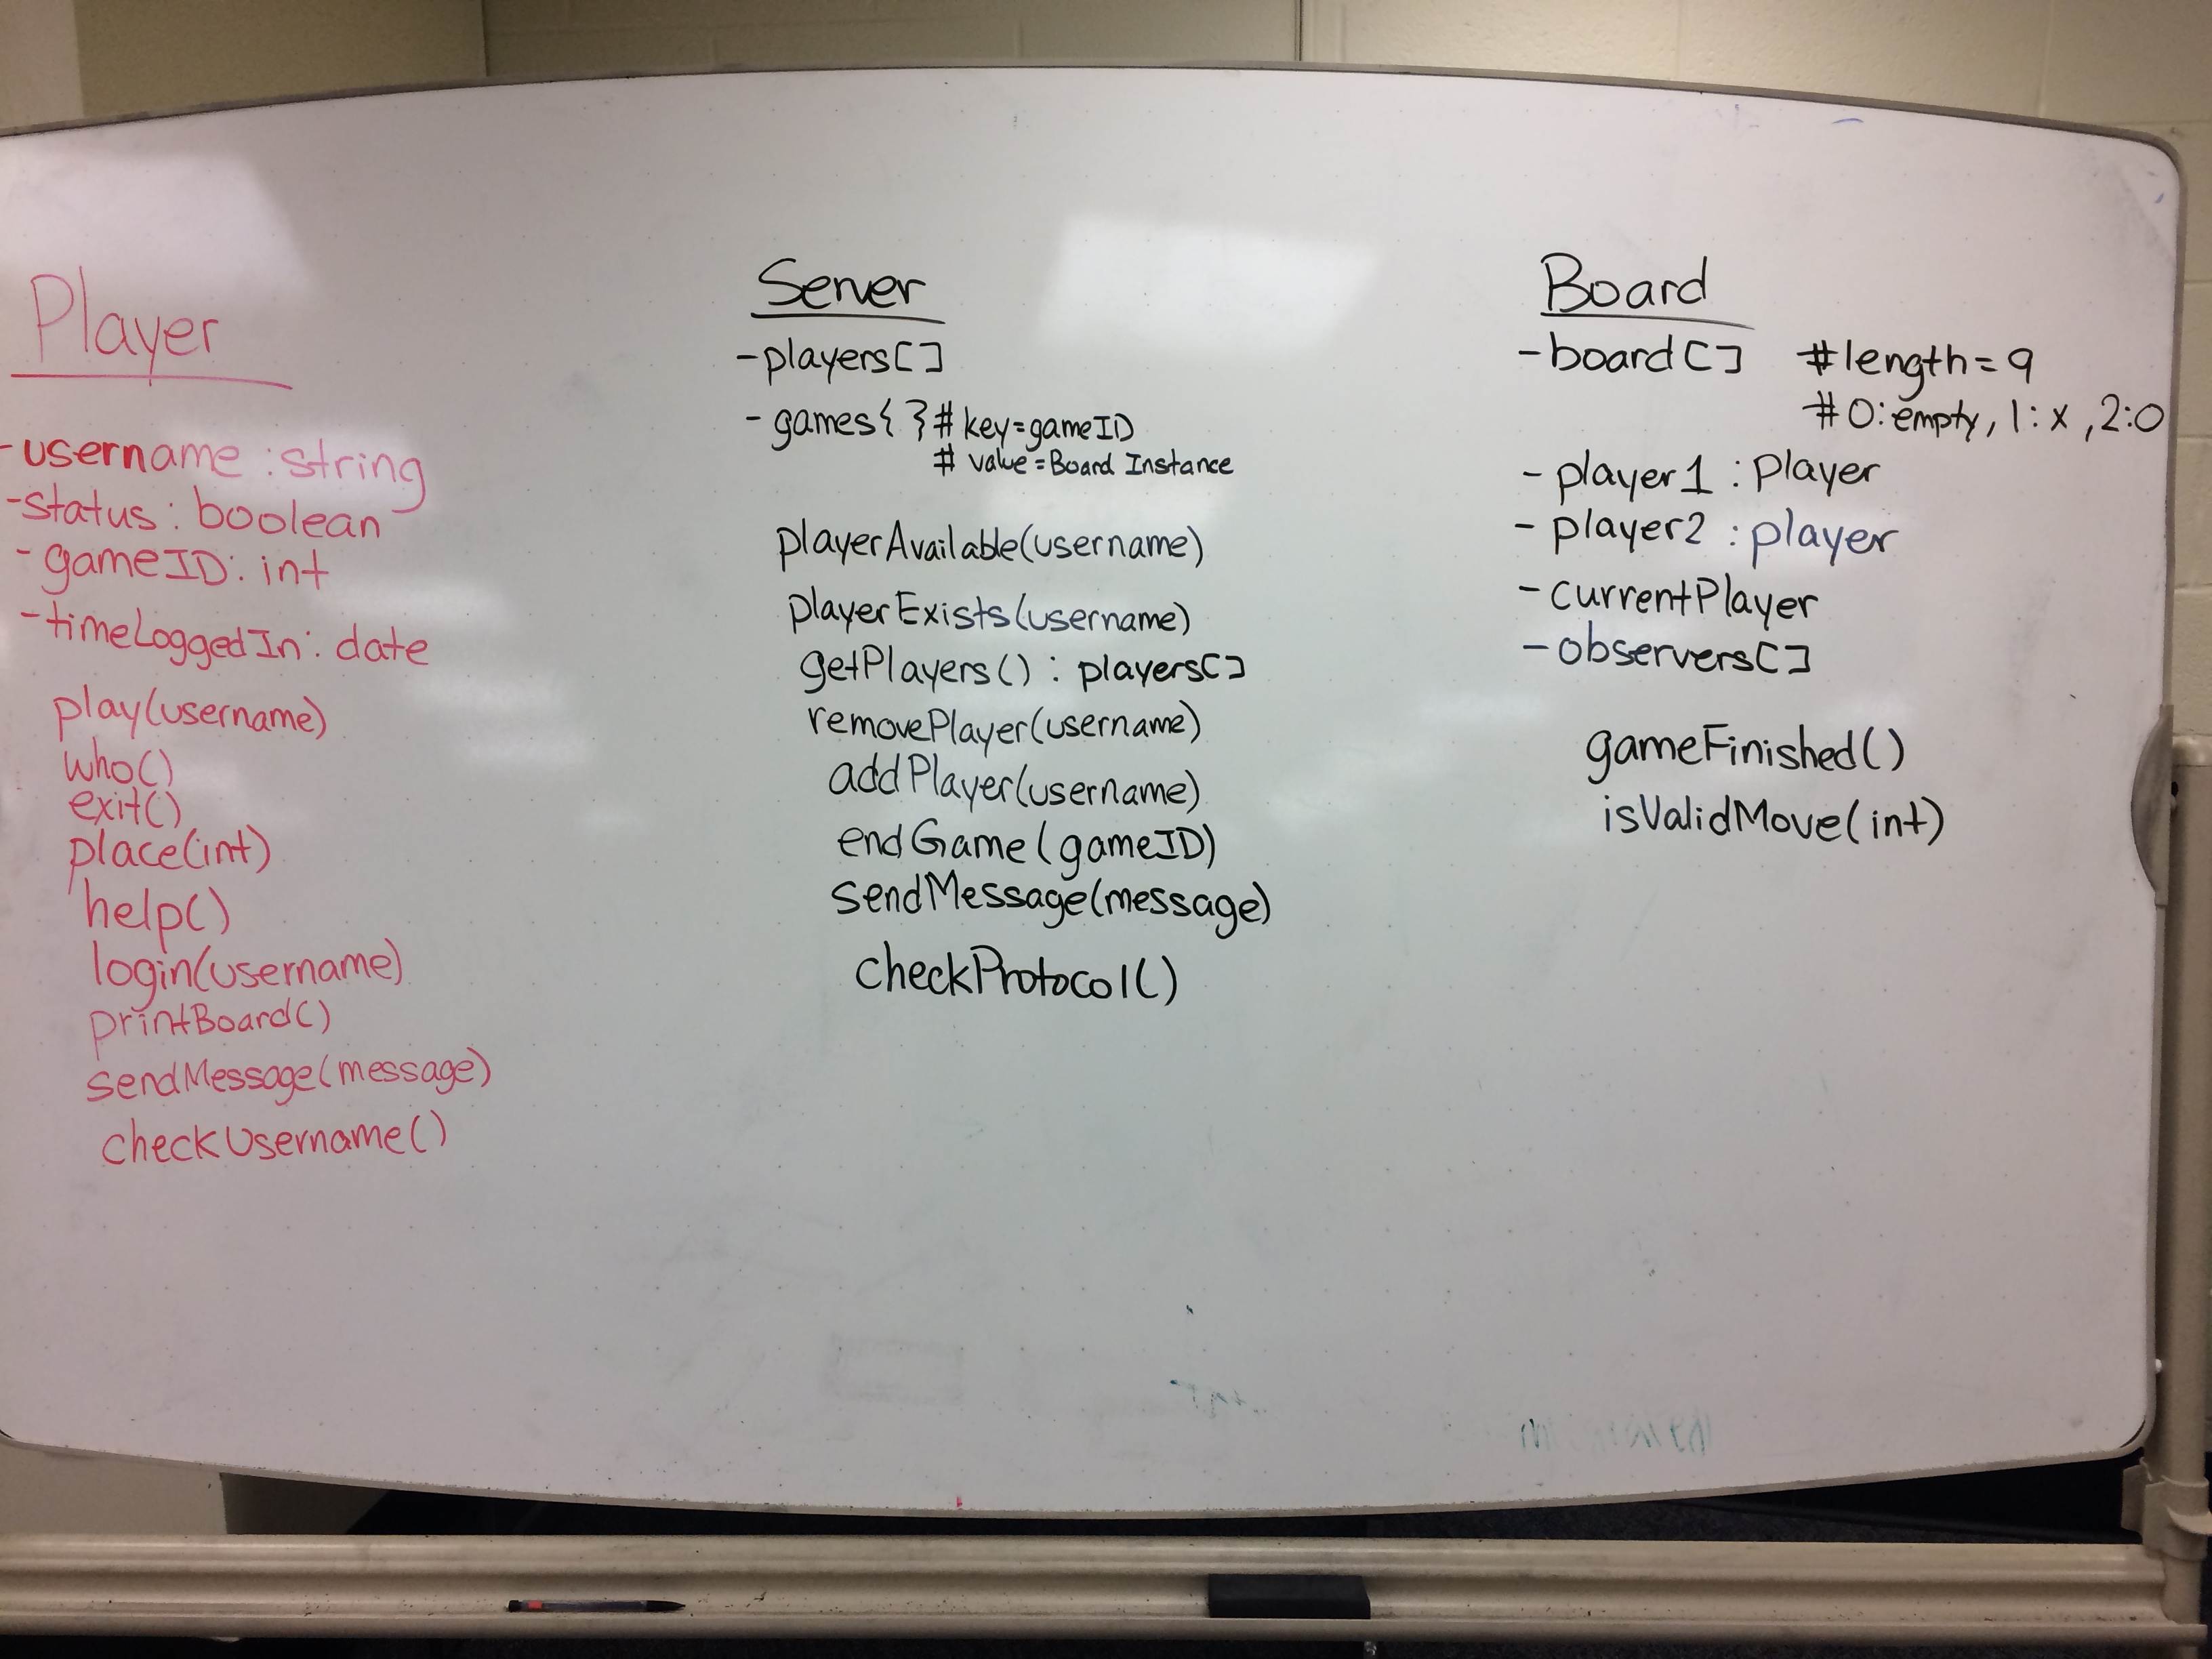 Player
-username : string
-status : boolean
-gameID: int
-timeLoggedIn: date
play(username)
who()
exit()
place(int)
help()
login(username)
printBoard()
sendMessage(message)
checkUsername()
Server
-players[]
- games{ } # key=gameID
# value=Board Instance
playerAvailable(username)
playerExists(username)
getPlayers() : players[]
removePlayer(username)
addPlayer(username)
endGame(gameID)
sendMessage(message)
checkProtocol()
Board
-board[] #length=9
#0:empty, 1:x ,2:0
- player1 : Player
- player2 : player
- currentPlayer
- observers[]
gameFinished()
isValidMove(int)